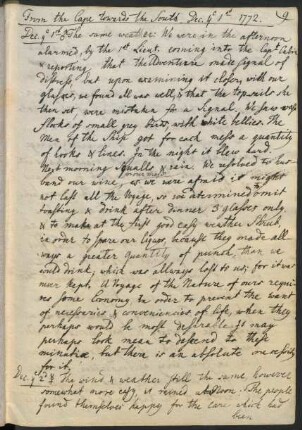 From the Cape towards the South Dec. ye 1st 1772. 9
Dec. ye 1st The same weather. We were in the afternoon
alarmed, by the 1st Lieut. coming into the Capt. Cabin
& reporting that the Adventure made Signal of
distress, but upon examining it closer, with our
glasses, we found all was well, & that the topsails she
then set, were mistaken for a Signal. We saw
flocks of small grey birds, with white bellies. The
Men of the Ship got for each mess a quantity
of hooks & lines. In the night it blew hard.
Next morning squally & rain. We resolved to hus
band our wine, as we were afraid it might
not last all the Voyage, so we determined to omit
toasting & drink after dinner 3 glasses only
& to make at the first good easy weather Shrub,
in order to spare our liquor, because they made all
ways a greater quantity of punch, than we
could drink, which was allways lost to us; for it was
never kept. A Voyage of the Nature of ours requi
res some Economy in order to prevent the want
of necessaries & conveniencies of life, when they
perhaps would be most desirable. It may
perhaps look mean to descend to these
minutiae, but there is an absolute necessity
for it.
Dec. ye 2d The wind & weather still the same, however
somewhat more easy, it rained at Noon. The people
found themselves happy for the care which had
been